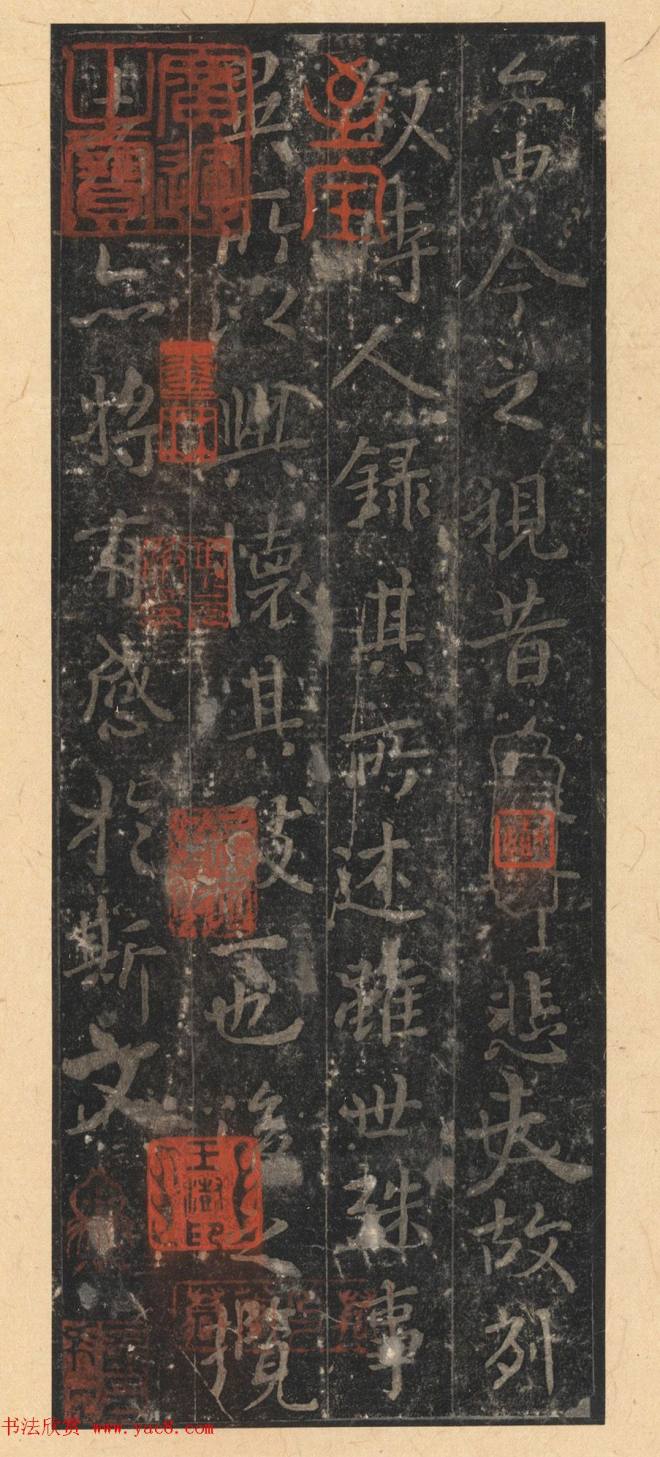 亦由今之視昔悲夫故列
敘時人錄其所述雖世殊事
異所以興懷其致一也後之攬
者亦將有感於斯文
廣運之寶
书法欣赏 www.yac8.com